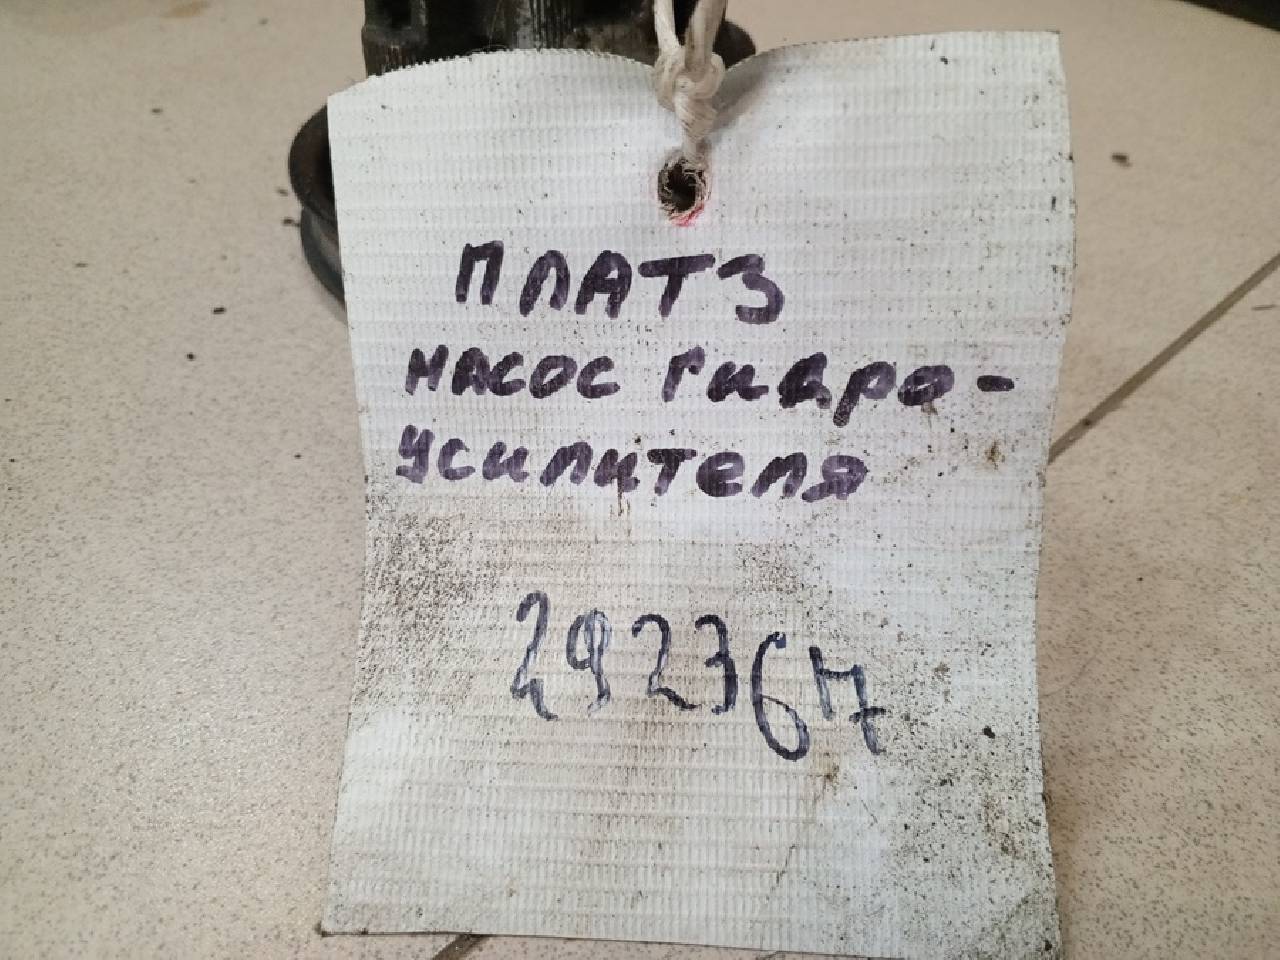 ПЛАТЗ
насос гидро-
усилителя
292367